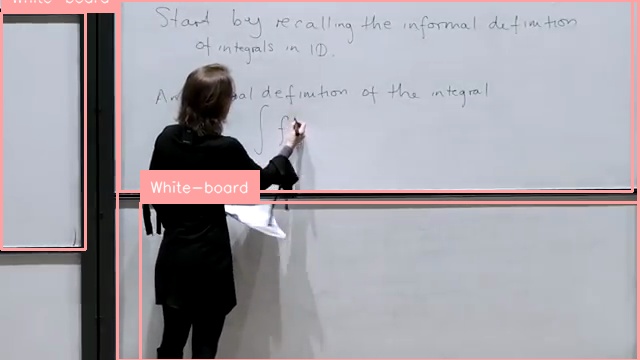 White-board
Start by recalling the informal definition
of integrals in 1D.
An al definition of the integral
∫ f
White-board